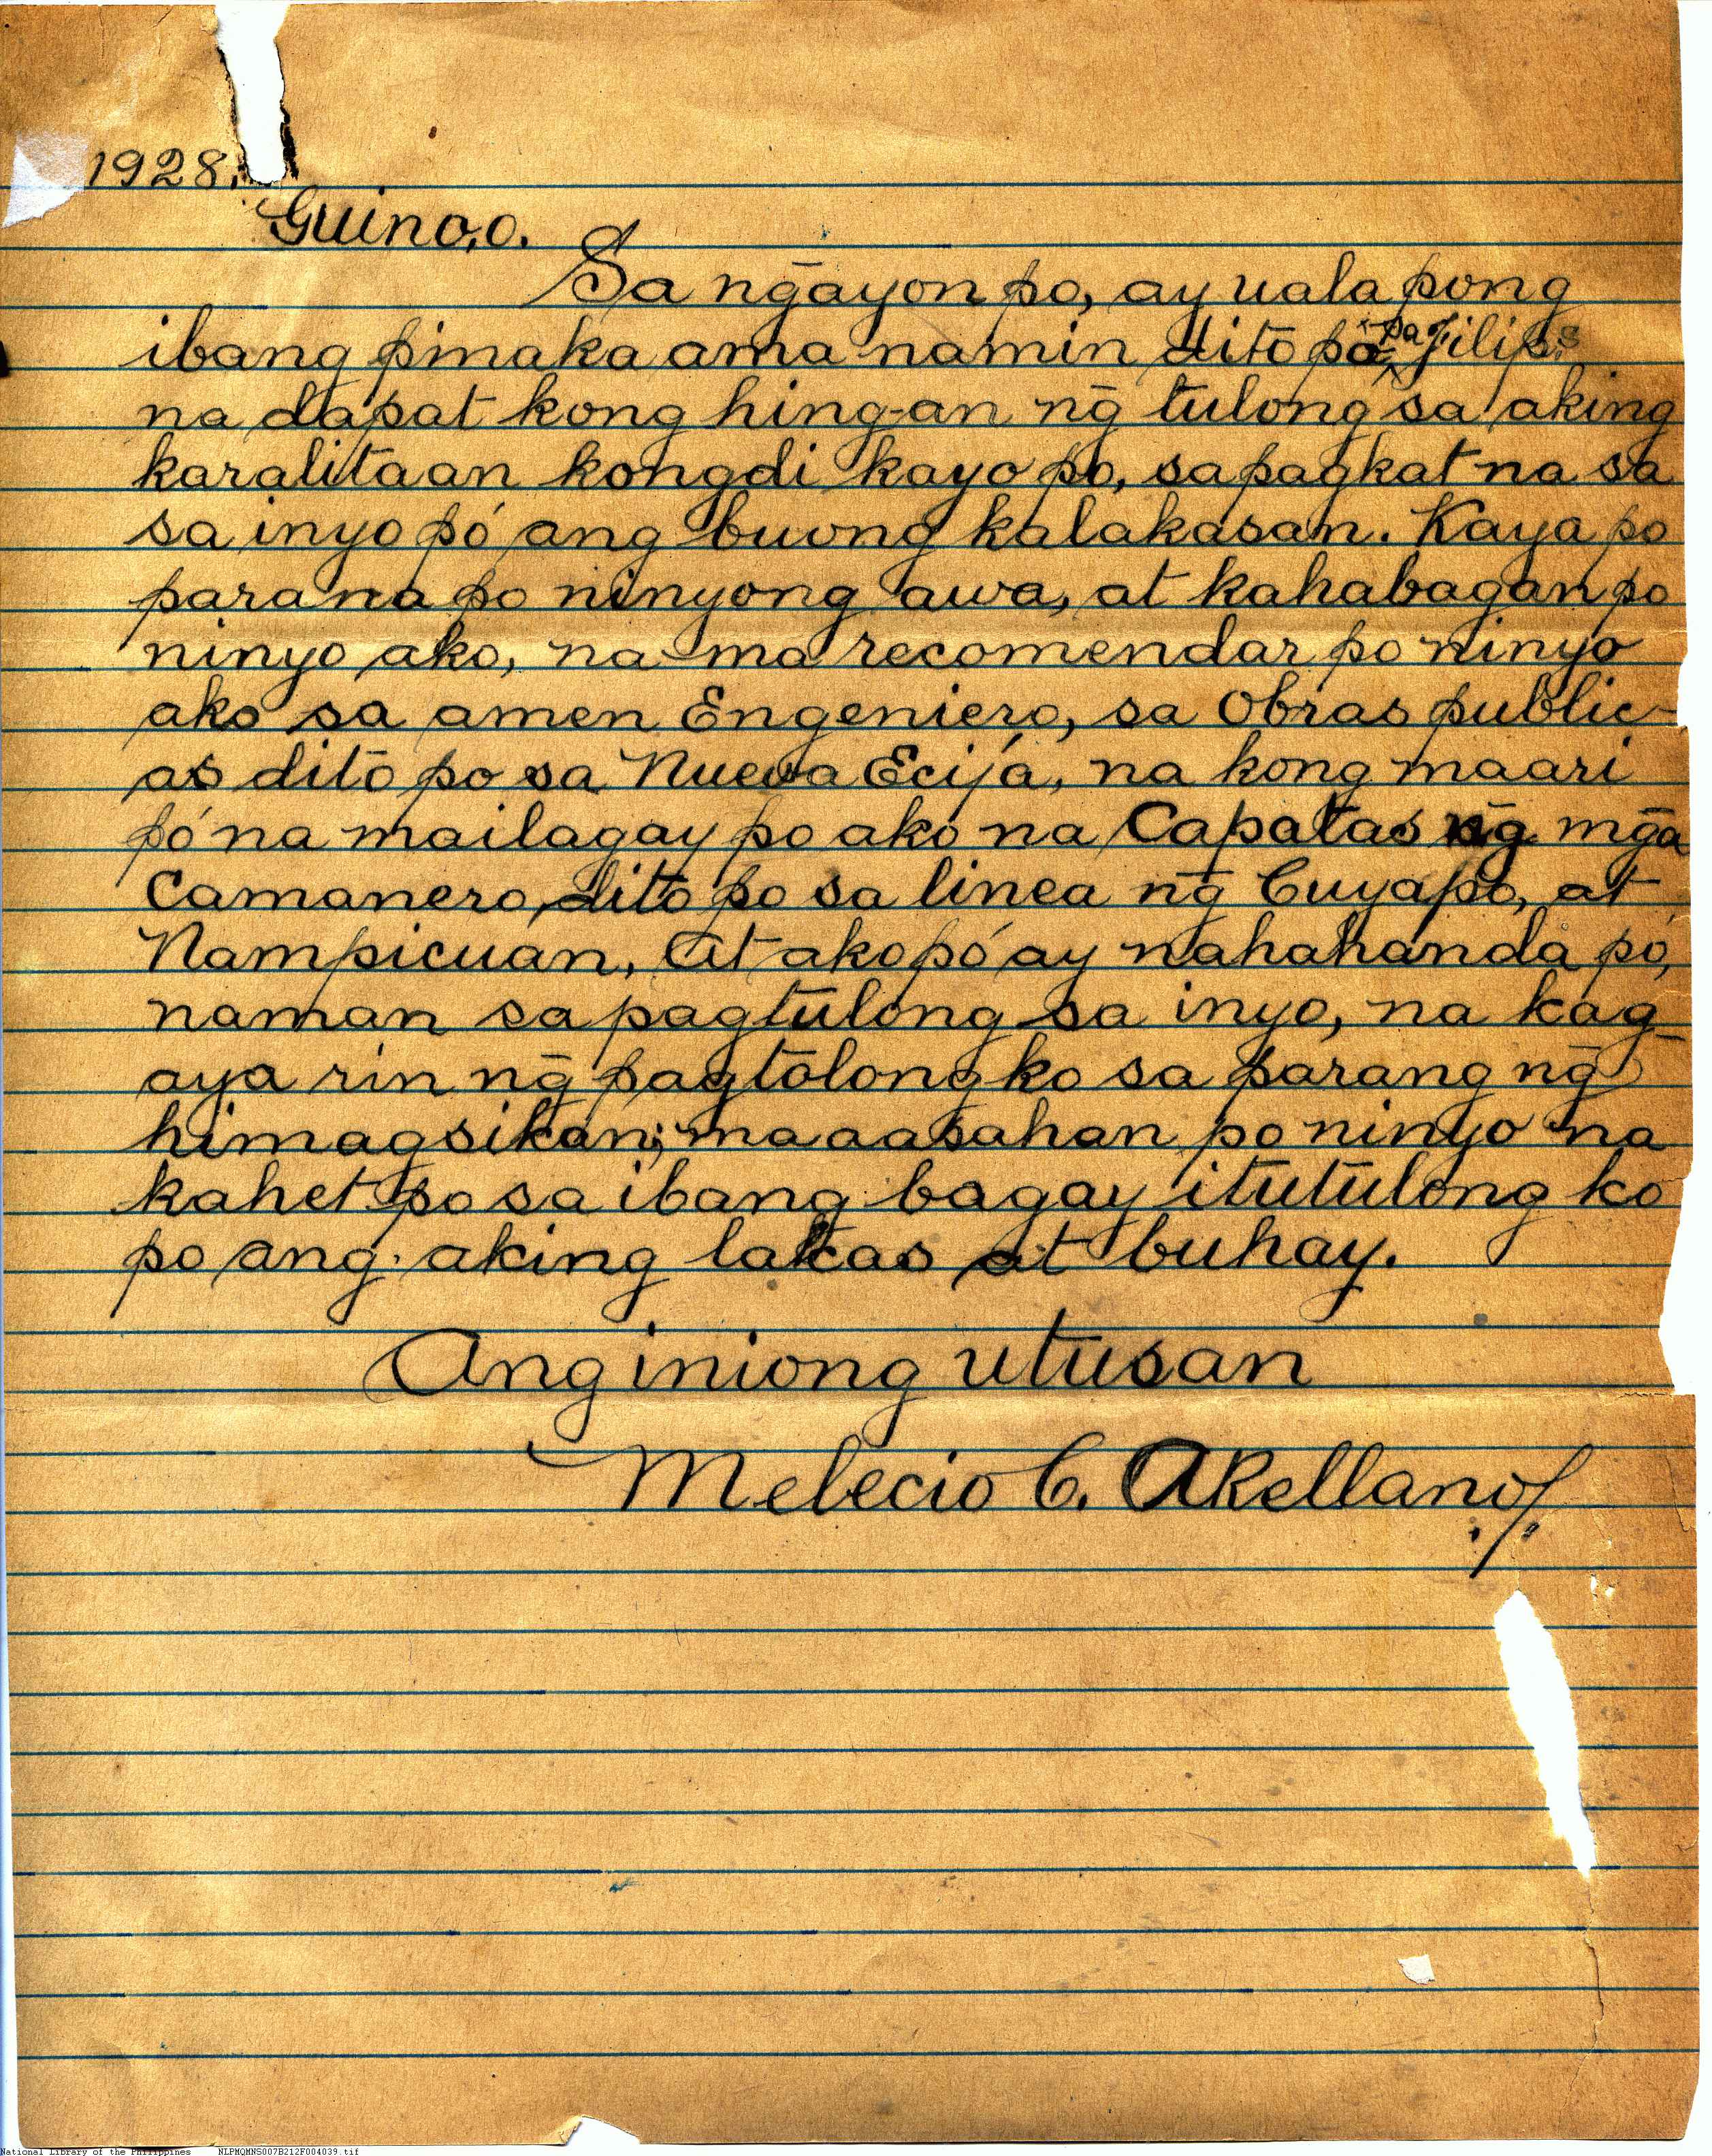 1928.
Guino,o.
Sa ngāyon po, ay uala pong
ibang pinaka ama namin dito po sa Filip.s
na dapat kong hing-an ng̃ tulong sa aking
karalitaan kongdi kayo po, sapagkat na sa
sa inyo pó ang buong kalakasan. Kaya po
parana po ninyong awa, at kahabagan po
ninyo ako, na ma recomendar po ninyo
ako sa amen Engeniero, sa Obras public-
as dito po sa Nueva Ecija, na kong maari
pó na mailagay po ako na Capatas ng̃ mg̃a
Camanero, dito po sa linea ng̃ Cuyapo, at
Nampicuan, At ako pó ay nahahanda po,
naman sa pagtulong sa inyo, na kag-
aya rin ng̃ pagtolong ko sa parang ng̃
himagsikan; maaasahan po ninyo na
kahet po sa ibang bagay itutulong ko
po ang aking lakas at buhay.
Ang iniong utusan
Melecio C. ARellano
National Library of the Philippines NLPMQMNS007B212F004039.tif